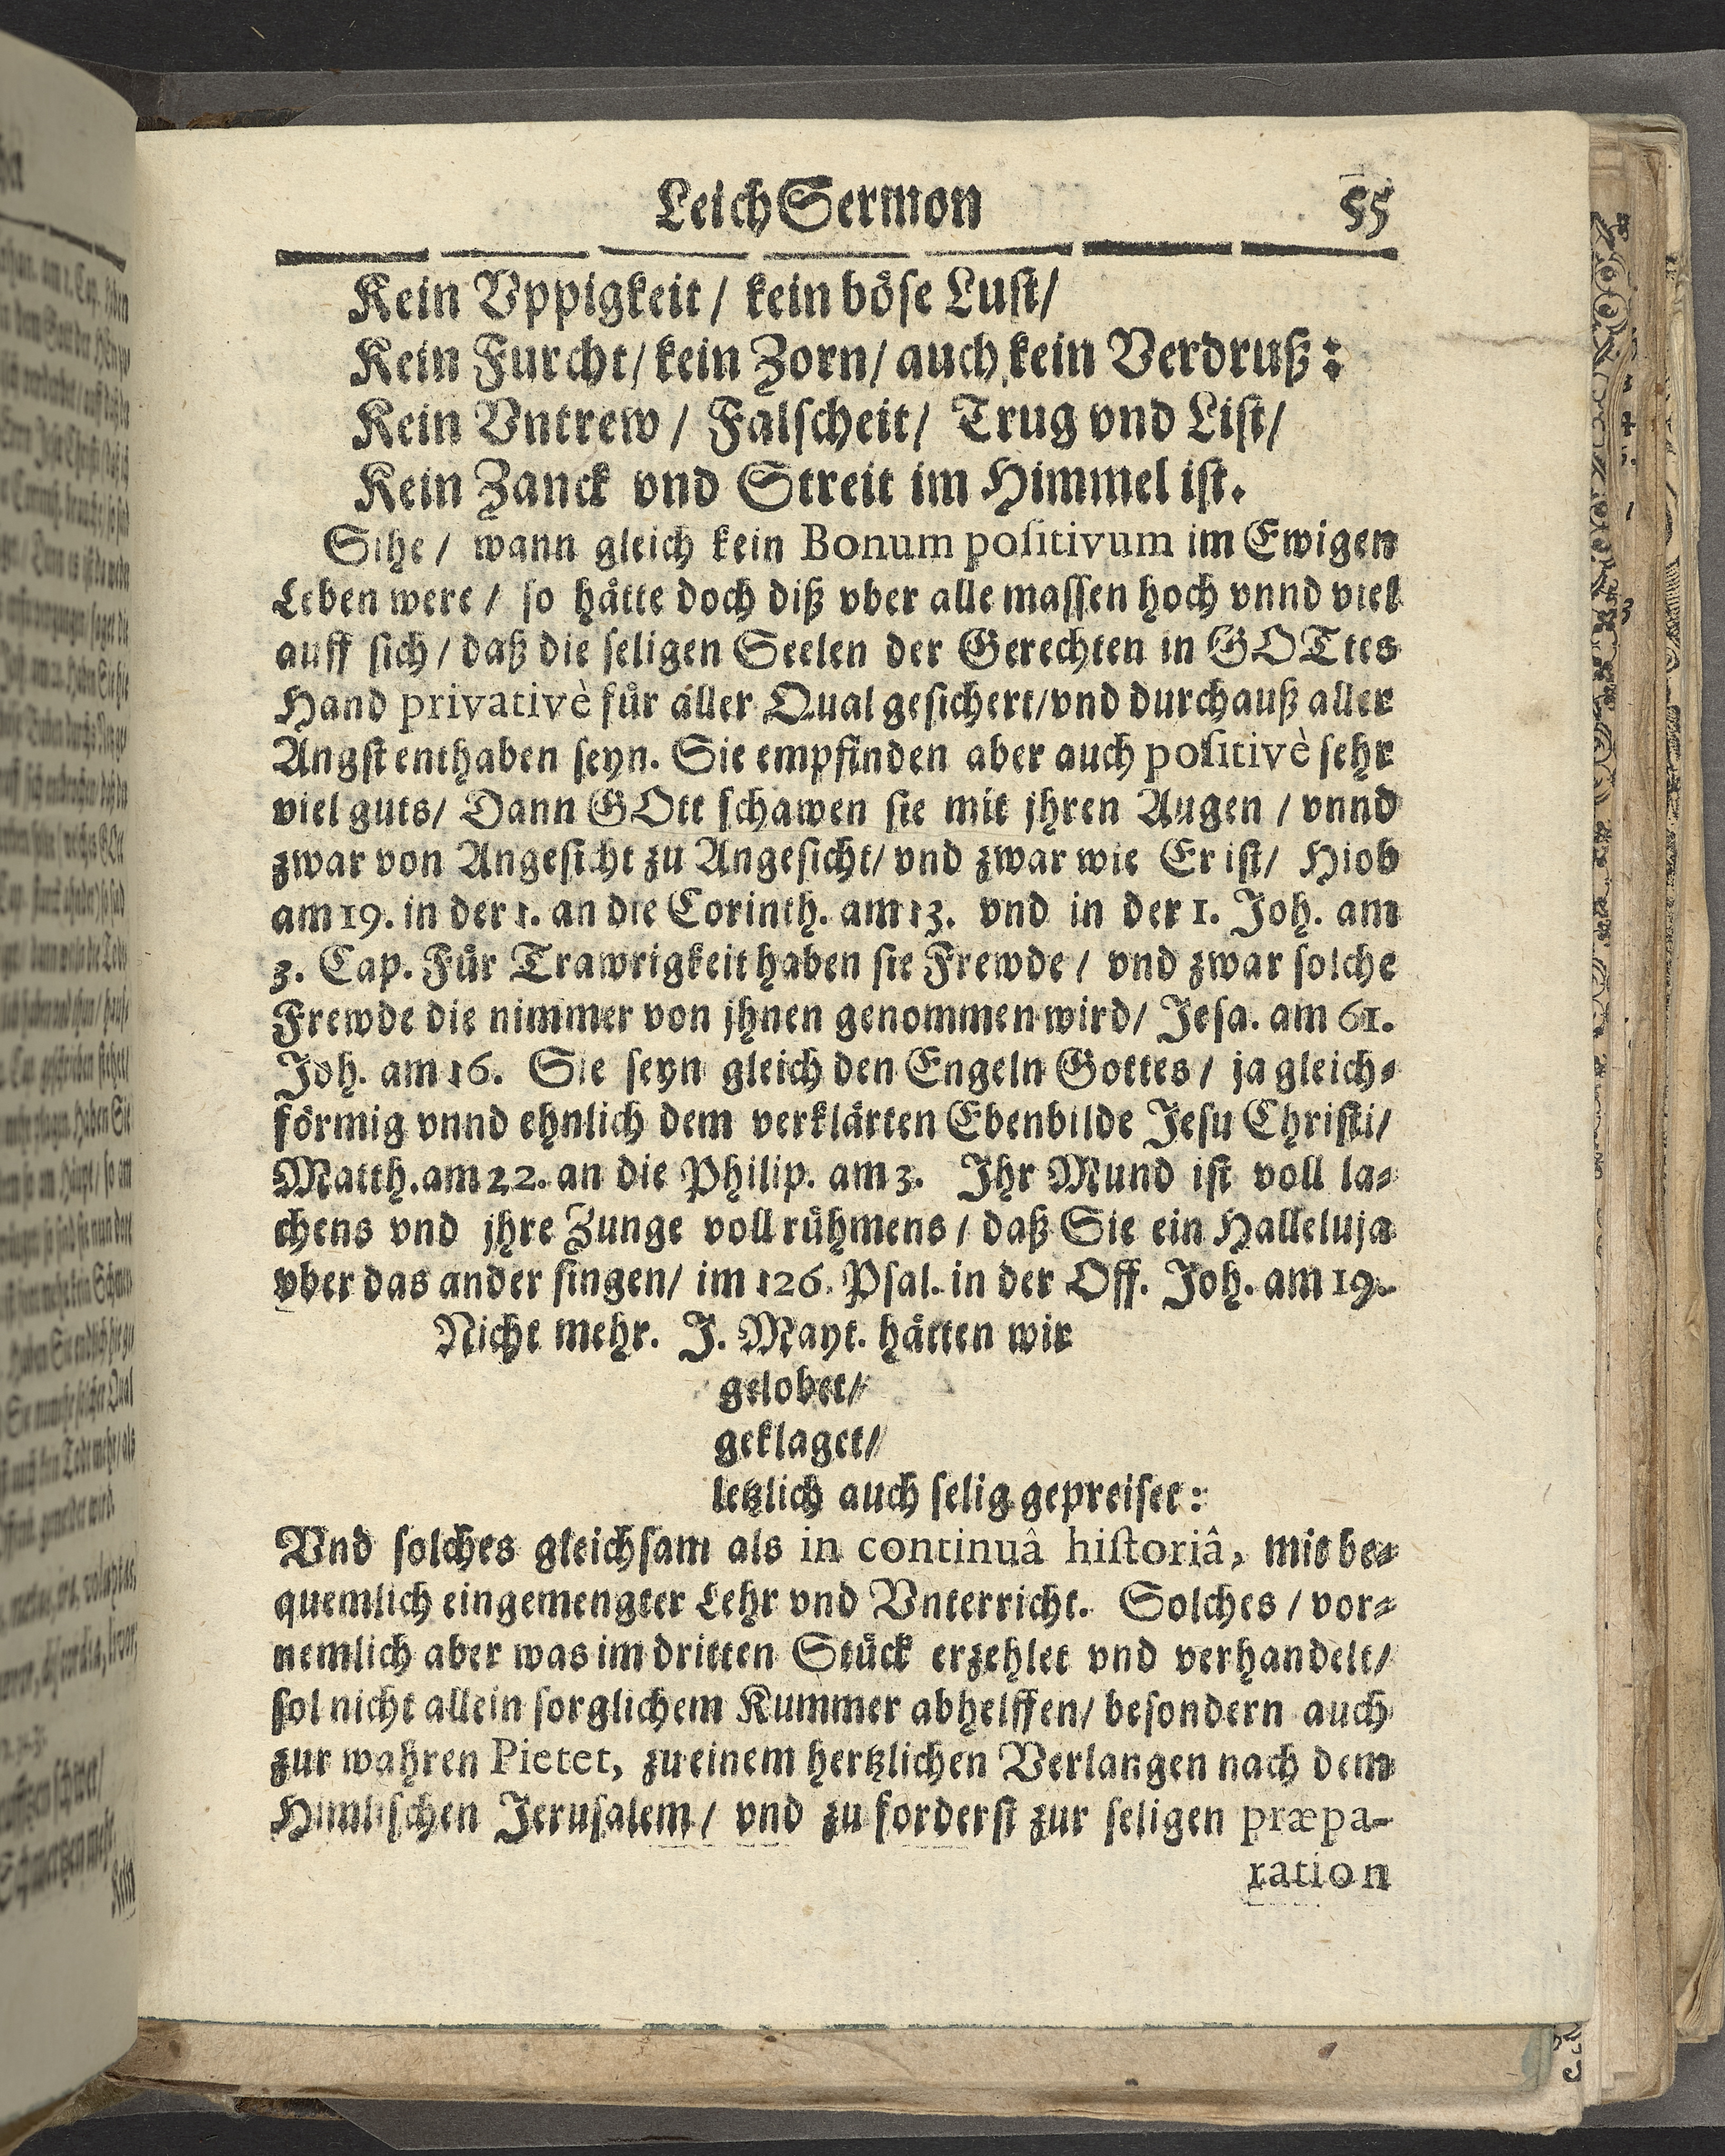 LeichSermon 55
Kein Vppigkeit / kein böse Lust/
Kein Furcht / kein Zorn / auch kein Verdruß:
Kein Vntrew / Falscheit / Trug vnd List /
Kein Zanck vnd Streit im Himmel ist.
Sihe / wann gleich kein Bonum positivum im Ewigen
Leben were / so hätte doch diß vber alle massen hoch vnnd viel
auff sich / daß die seligen Seelen der Gerechten in GOTtes
Hand privativè für aller Qual gesichert/vnd durchauß aller
Angst enthaben seyn. Sie empfinden aber auch positivè sehr
viel guts/ Dann GOtt schawen sie mit jhren Augen / vnnd
zwar von Angesicht zu Angesicht/ vnd zwar wie Er ist/ Hiob
am 19. in der 1. an die Corinth. am 13. vnd in der 1. Joh. am
3. Cap. Für Trawrigkeit haben sie Frewde / vnd zwar solche
Frewde die nimmer von jhnen genommen wird/ Jesa. am 61.
Joh. am 16. Sie seyn gleich den Engeln Gottes / ja gleich-
förmig vnnd ehnlich dem verklärten Ebenbilde Jesu Christi/
Matth. am 22. an die Philip. am 3. Ihr Mund ist voll la-
chens vnd jhre Zunge voll rühmens / daß Sie ein Halleluja
vber das ander singen/ im 126. Psal. in der Off. Joh. am 19.
Nicht mehr. J. Mayt. hätten wir
gelobet/
geklaget/
letzlich auch selig gepreiset:
Vnd solches gleichsam als in continuâ historiâ, mit be-
quemlich eingemengter Lehr vnd Vnterricht. Solches / vor-
nemlich aber was im dritten Stück erzehlet vnd verhandelt/
sol nicht allein sorglichem Kummer abhelffen/ besondern auch
zur wahren Pietet, zu einem hertzlichen Verlangen nach dem
Himlischen Jerusalem / vnd zu forderst zur seligen præpa-
ration